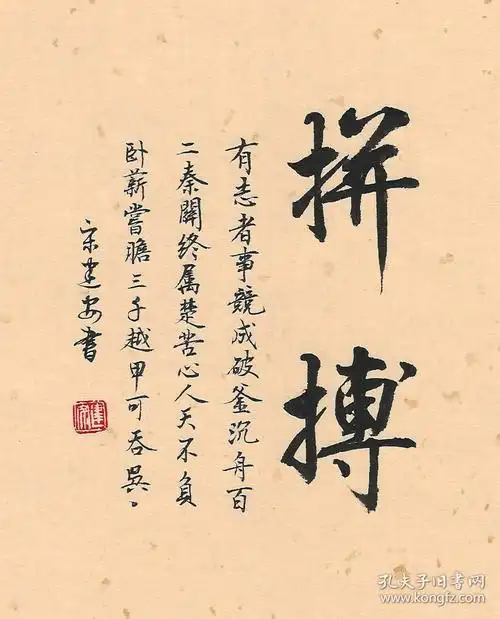 拼搏
有志者事競成破釜沉舟百
二秦關終属楚苦心人天不負
卧薪嘗膽三千越甲可吞吳。
宋建安書
孔夫子旧书网
www.kongfz.com